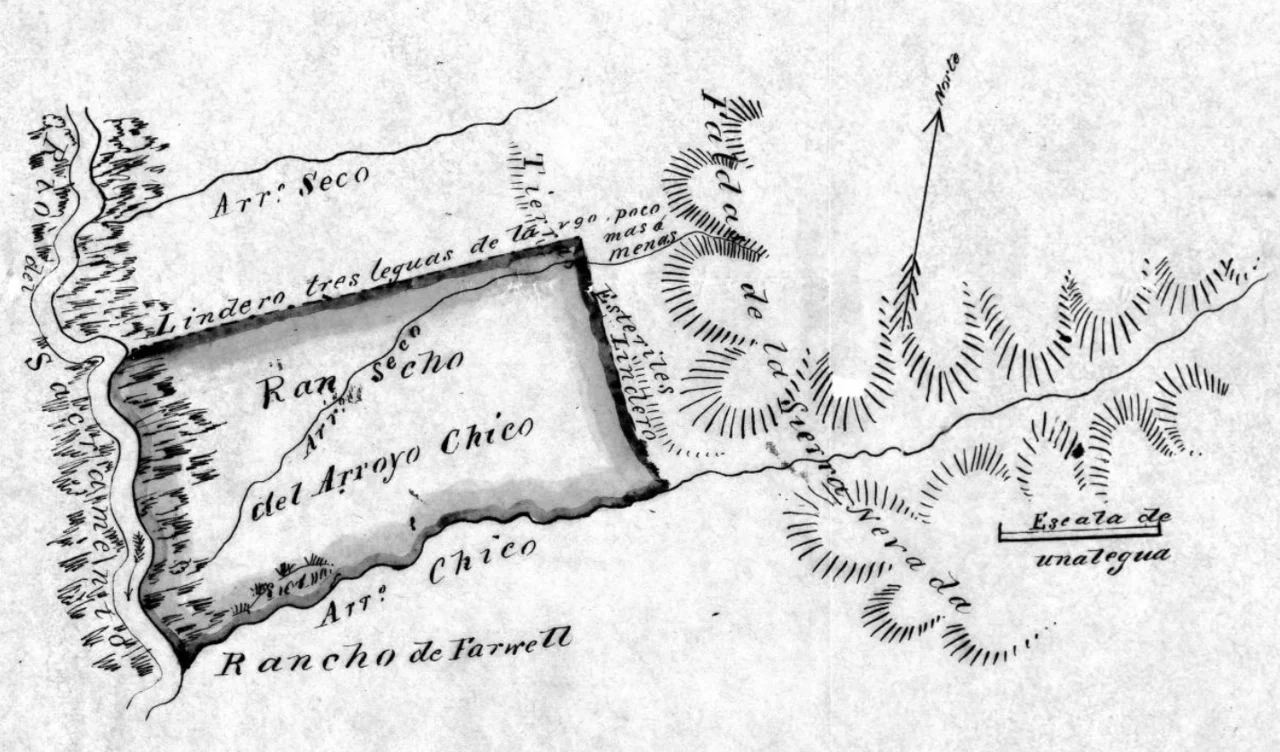 Norte
Arr.º Seco
Tierras
Falda de la Sierra Nevada
Rio del Sacramento
Lindero tres leguas de largo, poco
mas ó
menas
Esteriles
Lindero
Rancho
Arr.º Seco
del Arroyo Chico
Arr.º Chico
Rancho de Farwell
Escala de
una legua